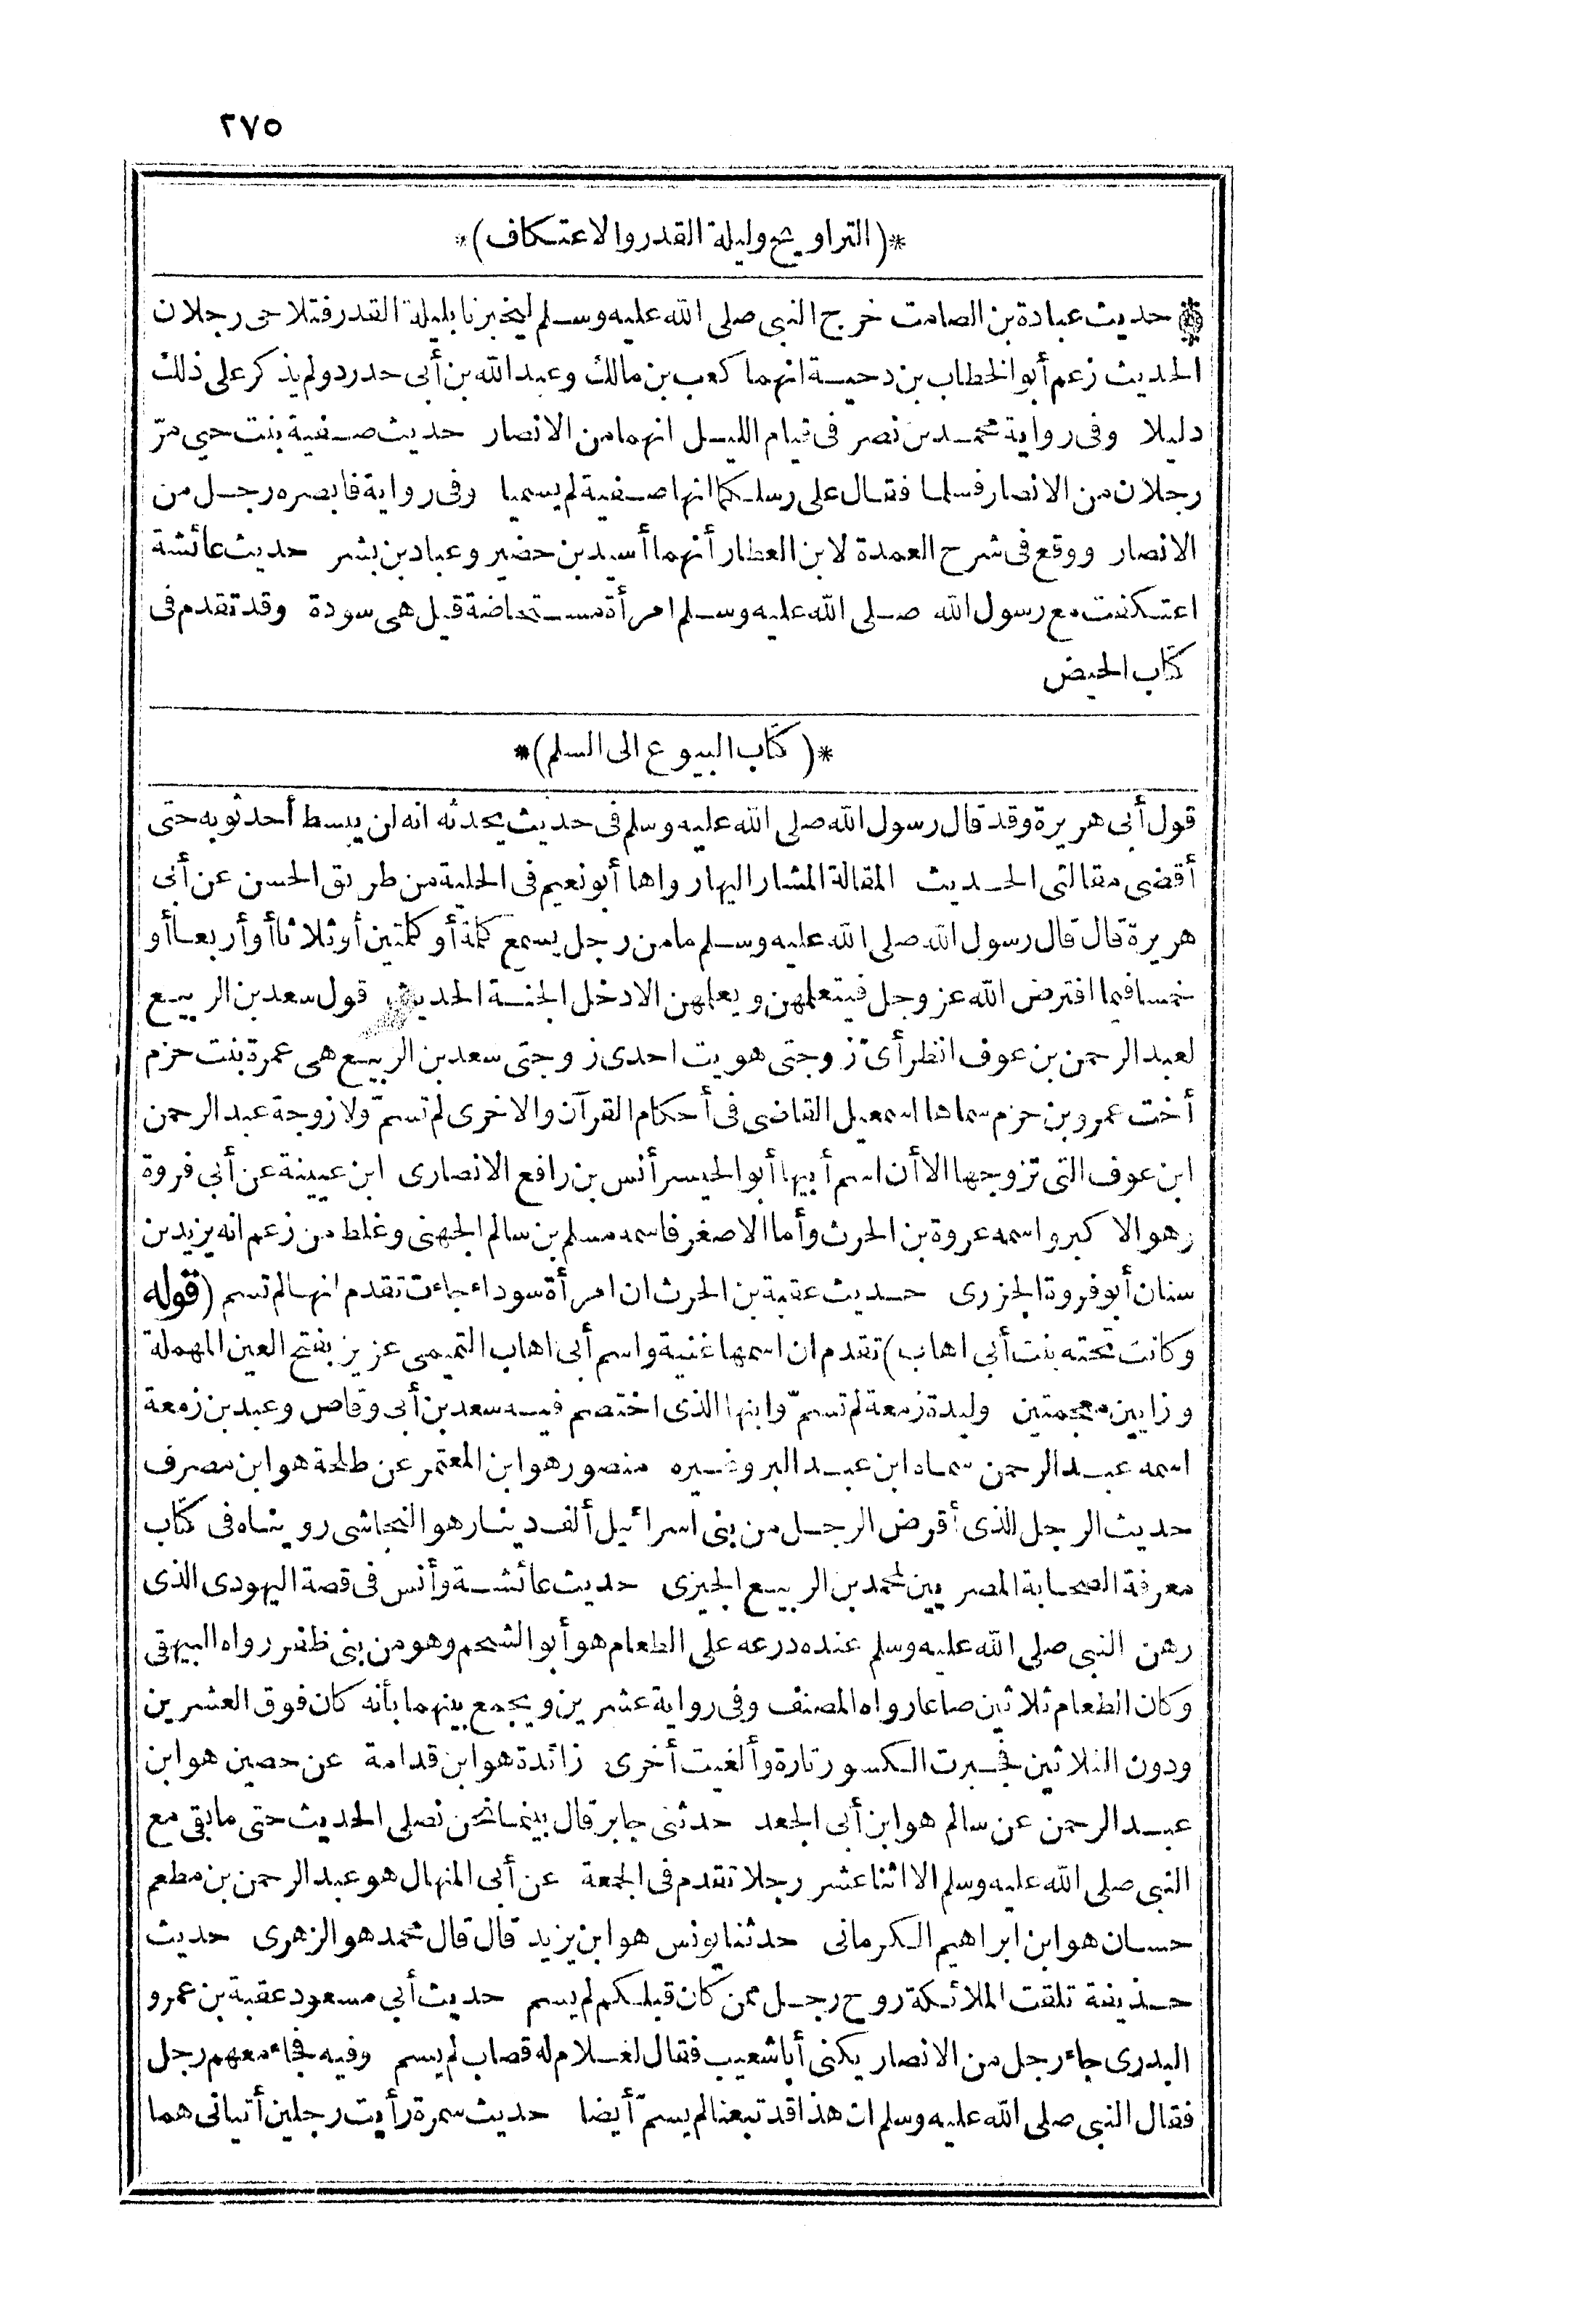 ٢٧٥
*(التراويح وليلة القدر والاعتكاف)*
حديث عبادة بن الصامت خرج النبي صلى الله عليه وسلم ليخبرنا بليلة القدر فتلاحى رجلان
الحديث زعم أبو الخطاب بن دحية انهما كعب بن مالك وعبد الله بن أبى حدرد ولم يذكر على ذلك
دليلا وفى رواية محمد بن نصر فى قيام الليل انهما من الانصار حديث صفية بنت حيى مرّ
رجلان من الانصار فسلما فقال على رسلكما انها صفية لم يسميا وفى رواية فابصره رجل من
الانصار ووقع فى شرح العمدة لابن العطار أنهما أسيد بن حضير وعباد بن بشر حديث عائشة
اعتكفت مع رسول الله صلى الله عليه وسلم امرأة مستحاضة قيل هى سودة وقد تقدم فى
كتاب الحيض
*(كتاب البيوع الى السلم)*
قول أبى هريرة وقد قال رسول الله صلى الله عليه وسلم فى حديث يحدثه انه لن يبسط أحد ثوبه حتى
أقضى مقالتى الحديث المقالة المشار اليها رواها أبو نعيم فى الحلية من طريق الحسن عن أبى
هريرة قال قال رسول الله صلى الله عليه وسلم ما من رجل يسمع كلمة أو كلمتين أو ثلاثا أو أربعا أو
خمسا فيما افترض الله عز وجل فيتعلمهن ويعلمهن الا دخل الجنة الحديث قول سعد بن الربيع
لعبد الرحمن بن عوف انظر أىّ زوجتى هويت احدى زوجتى سعد بن الربيع هى عمرة بنت حزم
أخت عمرو بن حزم سماها اسمعيل القاضى فى أحكام القرآن والاخرى لم تسمّ ولا زوجة عبد الرحمن
ابن عوف التى تزوجها الا أن اسم أبيها أبو الحيسر أنس بن رافع الانصارى ابن عيينة عن أبى فروة
هو الاكبر واسمه عروة بن الحرث وأما الاصغر فاسمه مسلم بن سالم الجهنى وغلط من زعم انه يزيد بن
سنان أبو فروة الجزرى حديث عقبة بن الحرث ان امرأة سوداء جاءت تقدم انها لم تسم (قوله
وكانت تحته بنت أبى اهاب) تقدم ان اسمها غنية واسم أبى اهاب التميمى عزيز بفتح العين المهملة
وزايين معجمتين وليدة زمعة لم تسمّ وابنها الذى اختصم فيه سعد بن أبى وقاص وعبد بن زمعة
اسمه عبد الرحمن سماه ابن عبد البر وغيره منصور هو ابن المعتمر عن طلحة هو ابن مصرف
حديث الرجل الذى أقرض الرجل من بنى اسرائيل ألف دينار هو النجاشى رويناه فى كتاب
معرفة الصحابة المصريين لمحمد بن الربيع الجيزى حديث عائشة وأنس فى قصة اليهودى الذى
رهن النبى صلى الله عليه وسلم عنده درعه على الطعام هو أبو الشحم وهو من بنى ظفر رواه البيهقى
وكان الطعام ثلاثين صاعا رواه المصنف وفى رواية عشرين ويجمع بينهما بأنه كان فوق العشرين
ودون الثلاثين فجبرت الكسور تارة وألغيت أخرى زائدة هو ابن قدامة عن حصين هو ابن
عبد الرحمن عن سالم هو ابن أبى الجعد حدثنى جابر قال بينما نحن نصلى الحديث حتى ما بقى مع
النبى صلى الله عليه وسلم الا اثنا عشر رجلا تقدم فى الجمعة عن أبى المنهال هو عبد الرحمن بن مطعم
حسان هو ابن ابراهيم الكرمانى حدثنا يونس هو ابن يزيد قال قال محمد هو الزهرى حديث
حذيفة تلقت الملائكة روح رجل ممن كان قبلكم لم يسم حديث أبى مسعود عقبة بن عمرو
البدرى جاء رجل من الانصار يكنى أبا شعيب فقال لغلام له قصاب لم يسم وفيه فجاء معهم رجل
فقال النبى صلى الله عليه وسلم ان هذا قد تبعنا لم يسمّ أيضا حديث سمرة رأيت رجلين أتيانى هما